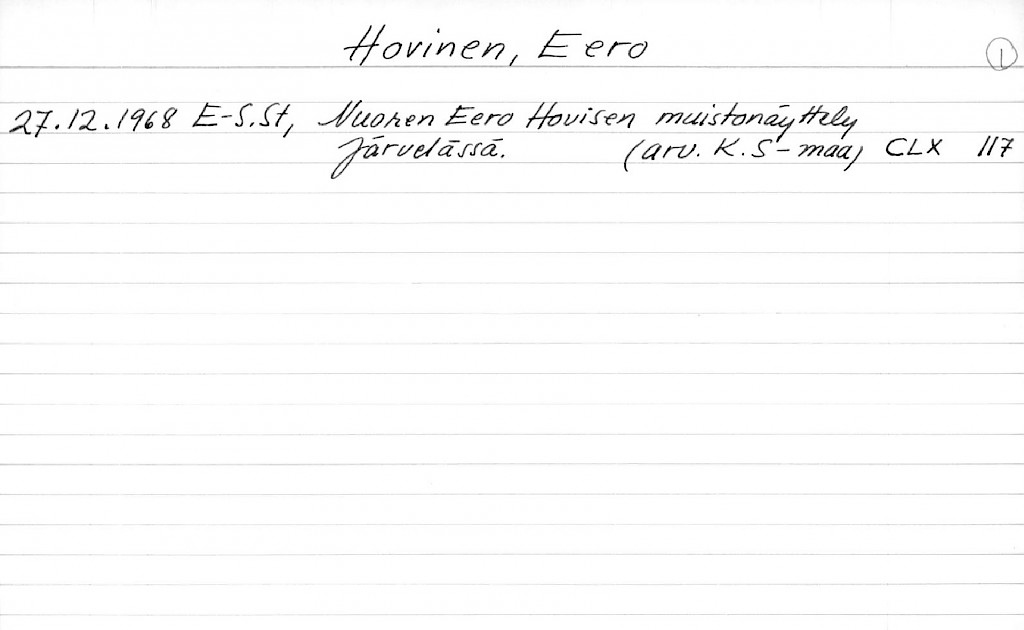 Hovinen, Eero
1
27.12.1968 E-S.St, Nuoren Eero Hovisen muistonäyttely
Järvelässä. (arv. K. S-maa) CLX 117